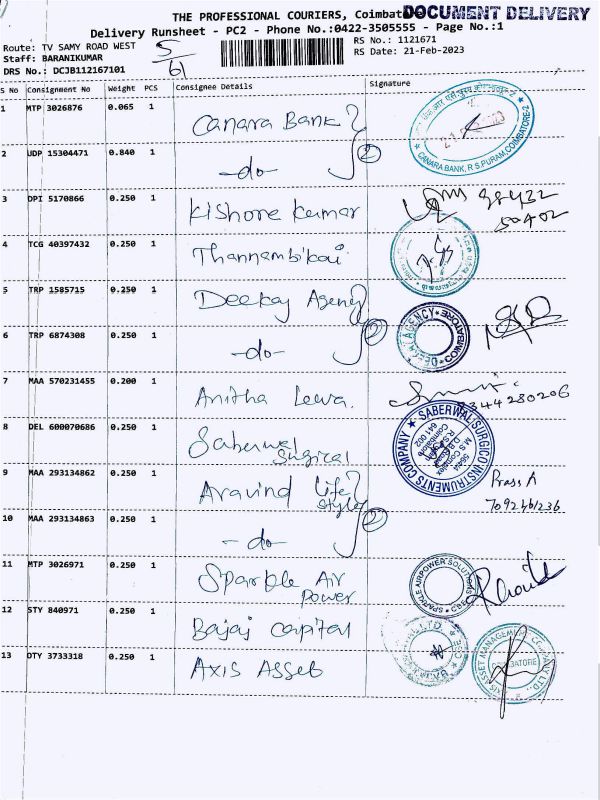 THE PROFESSIONAL COURIERS, Coimbat
DOCUMENT DELIVERY
Delivery Runsheet - PC2 - Phone No.:0422-3505555 - Page No.:1
Route: TV SAMY ROAD WEST
Staff: BARANIKUMAR
DRS No.: DCJB112167101
5/61
RS No.: 1121671
RS Date: 21-Feb-2023
S No Consignment No Weight PCS Consignee Details Signature
1 MTP 3026876 0.065 1 Canara Bank
CANARA BANK, R S PURAM, COIMBATORE-2
2 UDP 15304471 0.840 1 -do- 2
3 DPI 5170866 0.250 1 Kishore Kumar 98432
50402
4 TCG 40397432 0.250 1 Thannambikai
5 TRP 1585715 0.250 1 Deekay Agency
AGENCY COIMBATORE
6 TRP 6874308 0.250 1 -do- 2
7 MAA 570231455 0.200 1 Anitha
9344280206
8 DEL 600070686 0.250 1 Saberwal
Surgical
SABERWAL SURGICO INSTRUMENTS COMPANY
641 002
9 MAA 293134862 0.250 1 Aravind Life
Style
7092461236
10 MAA 293134863 0.250 1 -do- 2
11 MTP 3026971 0.250 1 Sparkle Air
Power
SPARKLE AIRPOWER SOLUTIONS
12 STY 840971 0.250 1 Bajaj Capital
13 DTY 3733318 0.250 1 Axis Asset
AXIS ASSET MANAGEMENT COMPANY LTD.
COIMBATORE